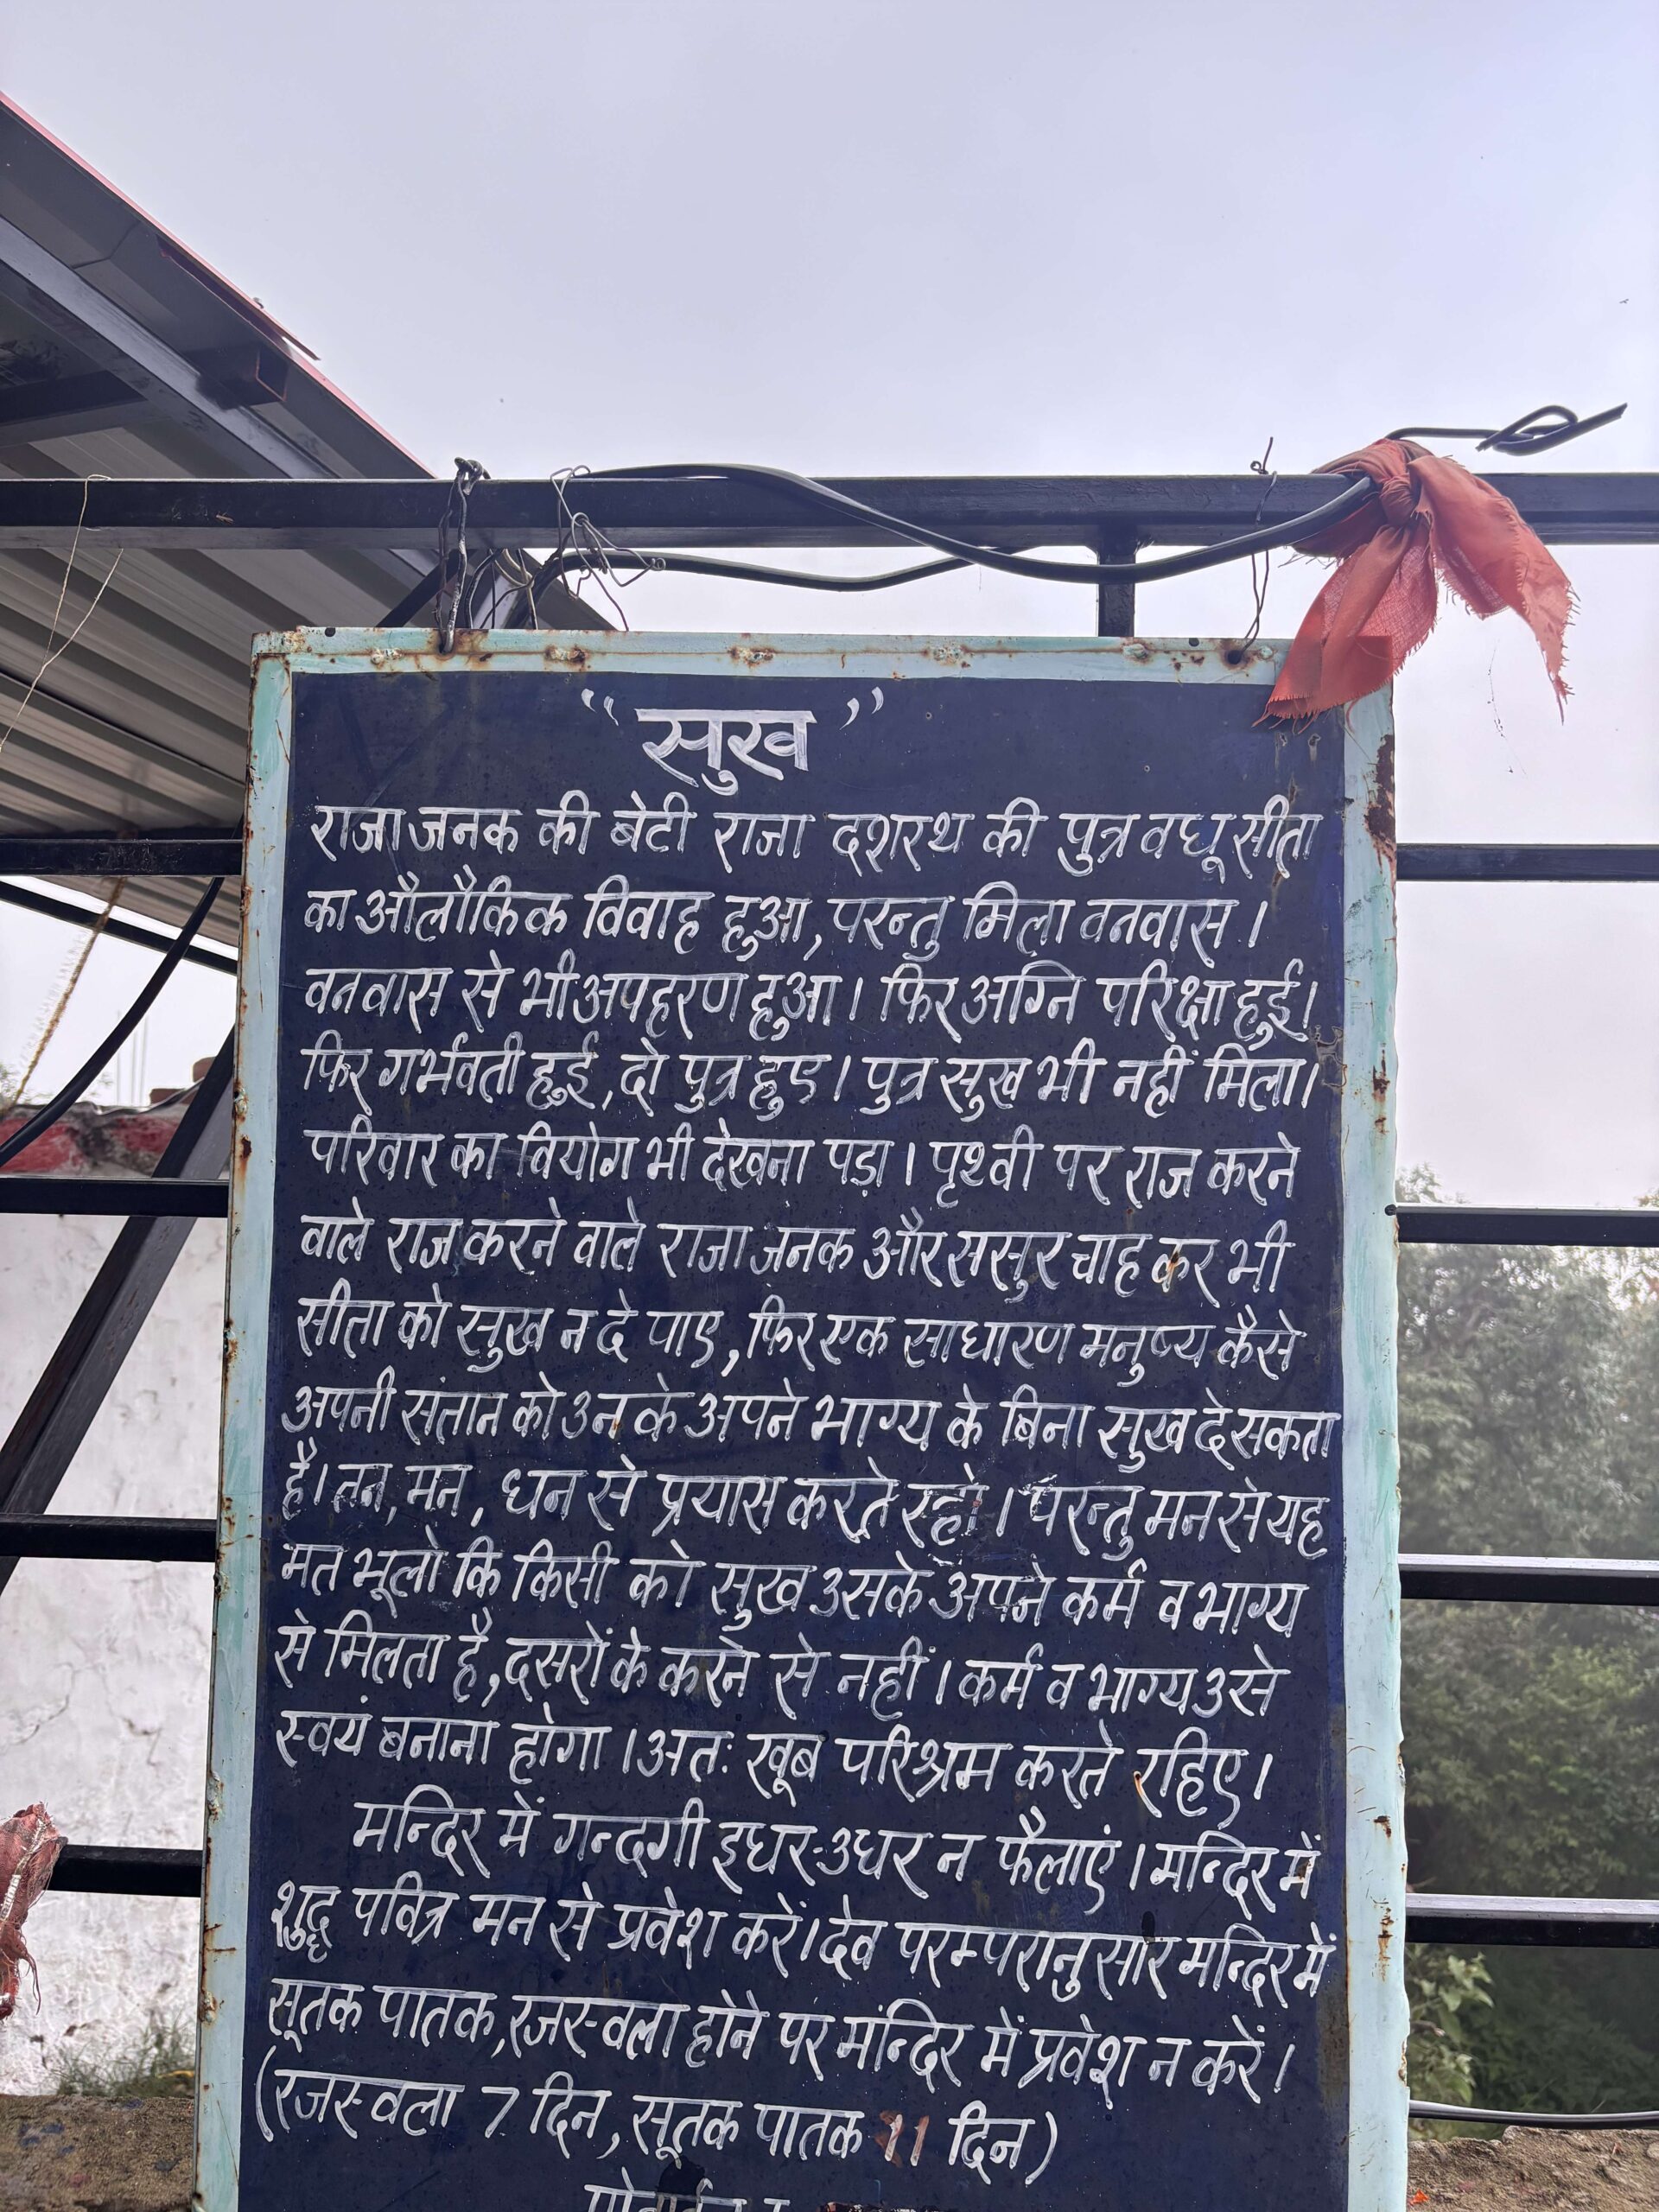 "सुख"
राजा जनक की बेटी राजा दशरथ की पुत्र वधू सीता
का औलौकिक विवाह हुआ, परन्तु मिला वनवास।
वनवास से भी अपहरण हुआ। फिर अग्नि परिक्षा हुई।
फिर गर्भवती हुई, दो पुत्र हुए। पुत्र सुख भी नहीं मिला।
परिवार का वियोग भी देखना पड़ा। पृथ्वी पर राज करने
वाले राज करने वाले राजा जनक और ससुर चाह कर भी
सीता को सुख न दे पाए, फिर एक साधारण मनुष्य कैसे
अपनी संतान को उनके अपने भाग्य के बिना सुख दे सकता
है। तन, मन, धन से प्रयास करते रहो। परन्तु मन से यह
मत भूलो कि किसी को सुख उसके अपने कर्म व भाग्य
से मिलता है, दसरों के करने से नहीं। कर्म व भाग्य उसे
स्वयं बनाना होगा। अतः खूब परिश्रम करते रहिए।
मन्दिर में गन्दगी इधर-उधर न फैलाएं। मन्दिर में
शुद्ध पवित्र मन से प्रवेश करें। देव परम्परानुसार मन्दिर में
सूतक पातक, रजस्वला होने पर मंन्दिर में प्रवेश न करें।
(रजस्वला 7 दिन, सूतक पातक 11 दिन)